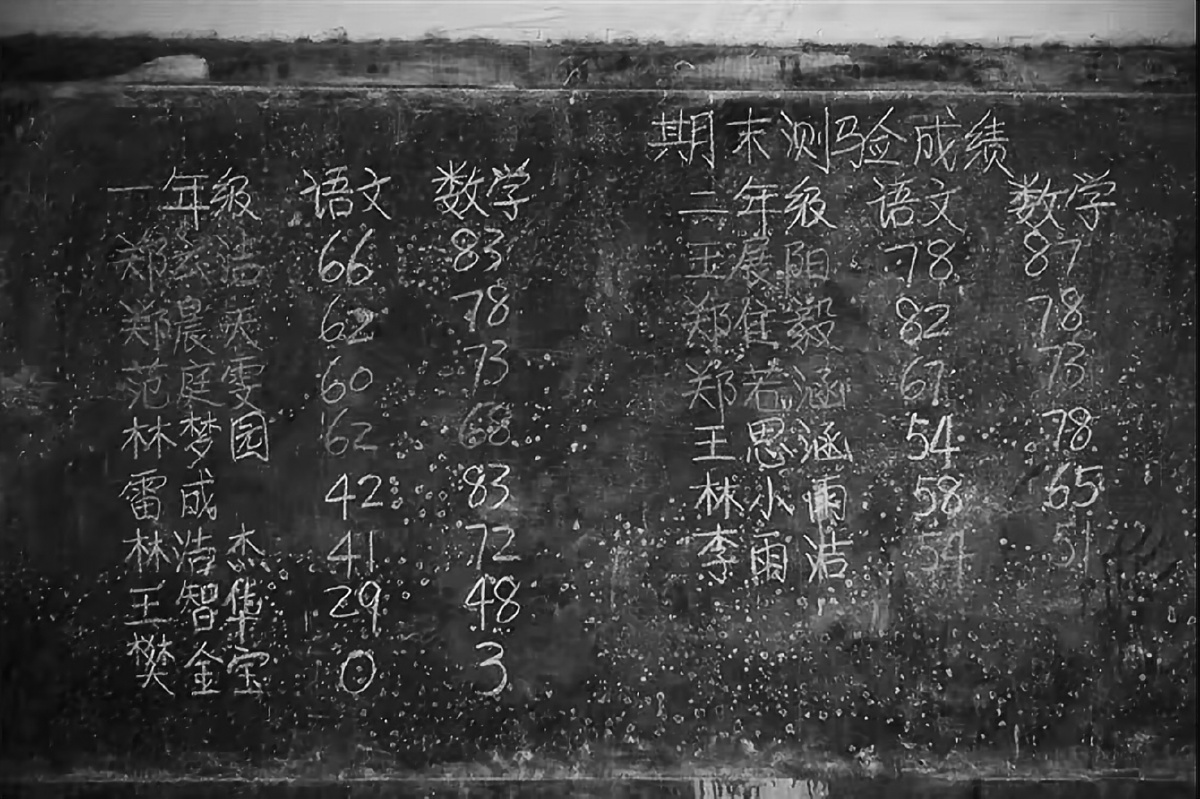 期末测验成绩
一年级 语文 数学
郑云洁 66 83
郑晨天 62 78
范庭雯 60 73
林梦园 62 68
雷成 42 83
林洁杰 41 72
王智华 29 48
樊金宝 0 3
二年级 语文 数学
王展阳 78 87
郑佳毅 82 78
郑若涵 61 73
王思涵 54 78
林小雨 58 65
李雨洁 54 51